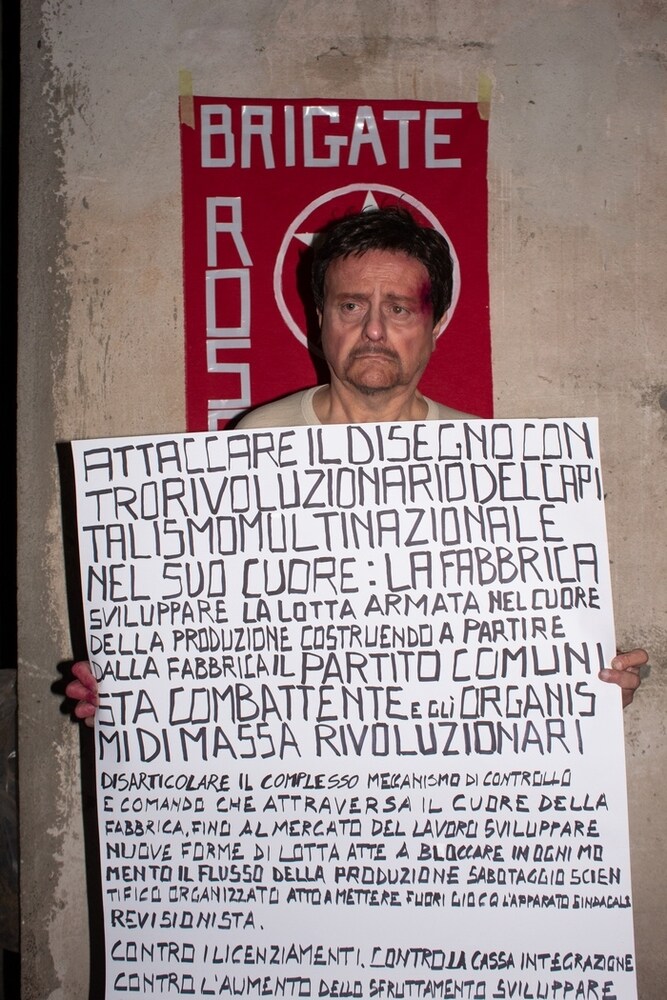 BRIGATE
ROSS
ATTACCARE IL DISEGNO CON
TRORIVOLUZIONARIO DEL CAPI
TALISMO MULTINAZIONALE
NEL SUO CUORE: LA FABBRICA
SVILUPPARE LA LOTTA ARMATA NEL CUORE
DELLA PRODUZIONE COSTRUENDO A PARTIRE
DALLA FABBRICA IL PARTITO COMUNI
STA COMBATTENTE E GLÌ ORGANIS
MI DI MASSA RIVOLUZIONARI
DISARTICOLARE IL COMPLESSO MECCANISMO DI CONTROLLO
E COMANDO CHE ATTRAVERSA IL CUORE DELLA
FABBRICA, FINO AL MERCATO DEL LAVORO SVILUPPARE
NUOVE FORME DI LOTTA ATTE A BLOCCARE IN OGNI MO
MENTO IL FLUSSO DELLA PRODUZIONE SABOTAGGIO SCIEN
TIFICO ORGANIZZATO ATTO A METTERE FUORI GIOCO L'APPARATO SINDACALE
REVISIONISTA.
CONTRO I LICENZIAMENTI. CONTRO LA CASSA INTEGRAZIONE
CONTRO L'AUMENTO DELLO SFRUTTAMENTO SVILUPPARE